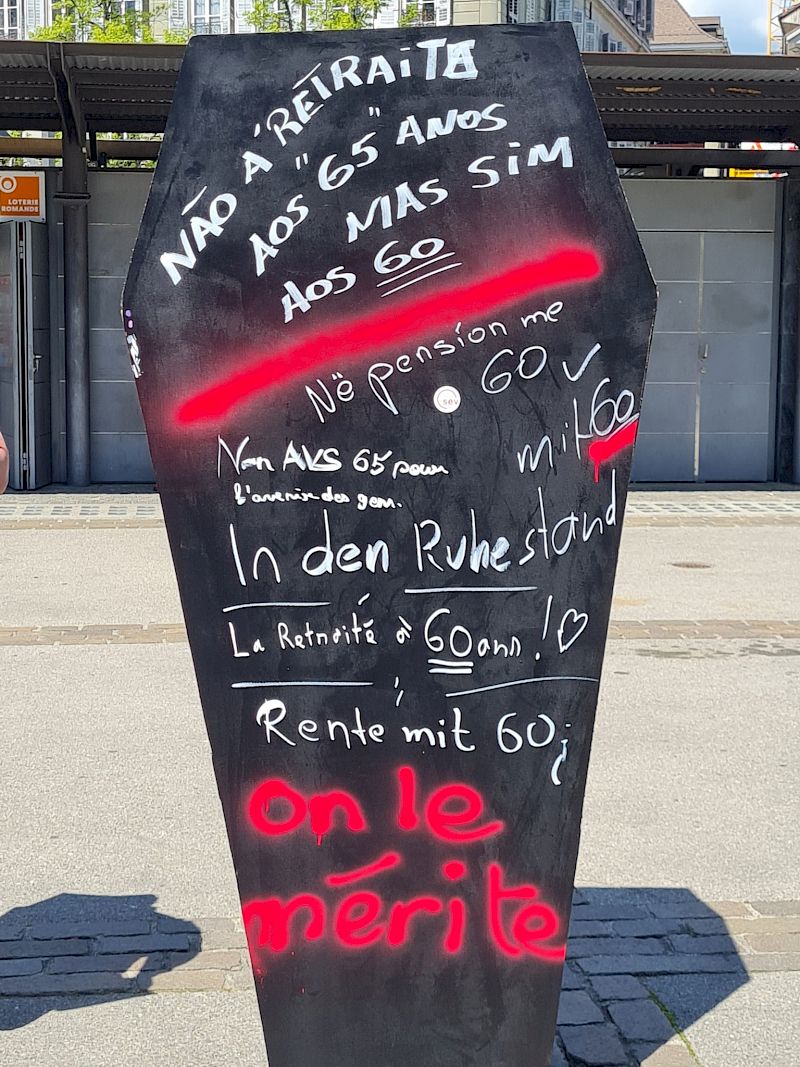 LOTERIE
ROMANDE
NÃO A 'RÉTRAITA
AOS "65" ANOS
MAS SIM
AOS 60
Në pension me
60 ✓
sev
mit 60
Non AVS 65 pour
l'avenir des gen.
In den Ruhestand
La Retraité à 60 ans ! ♡
Rente mit 60j
on le
mérite